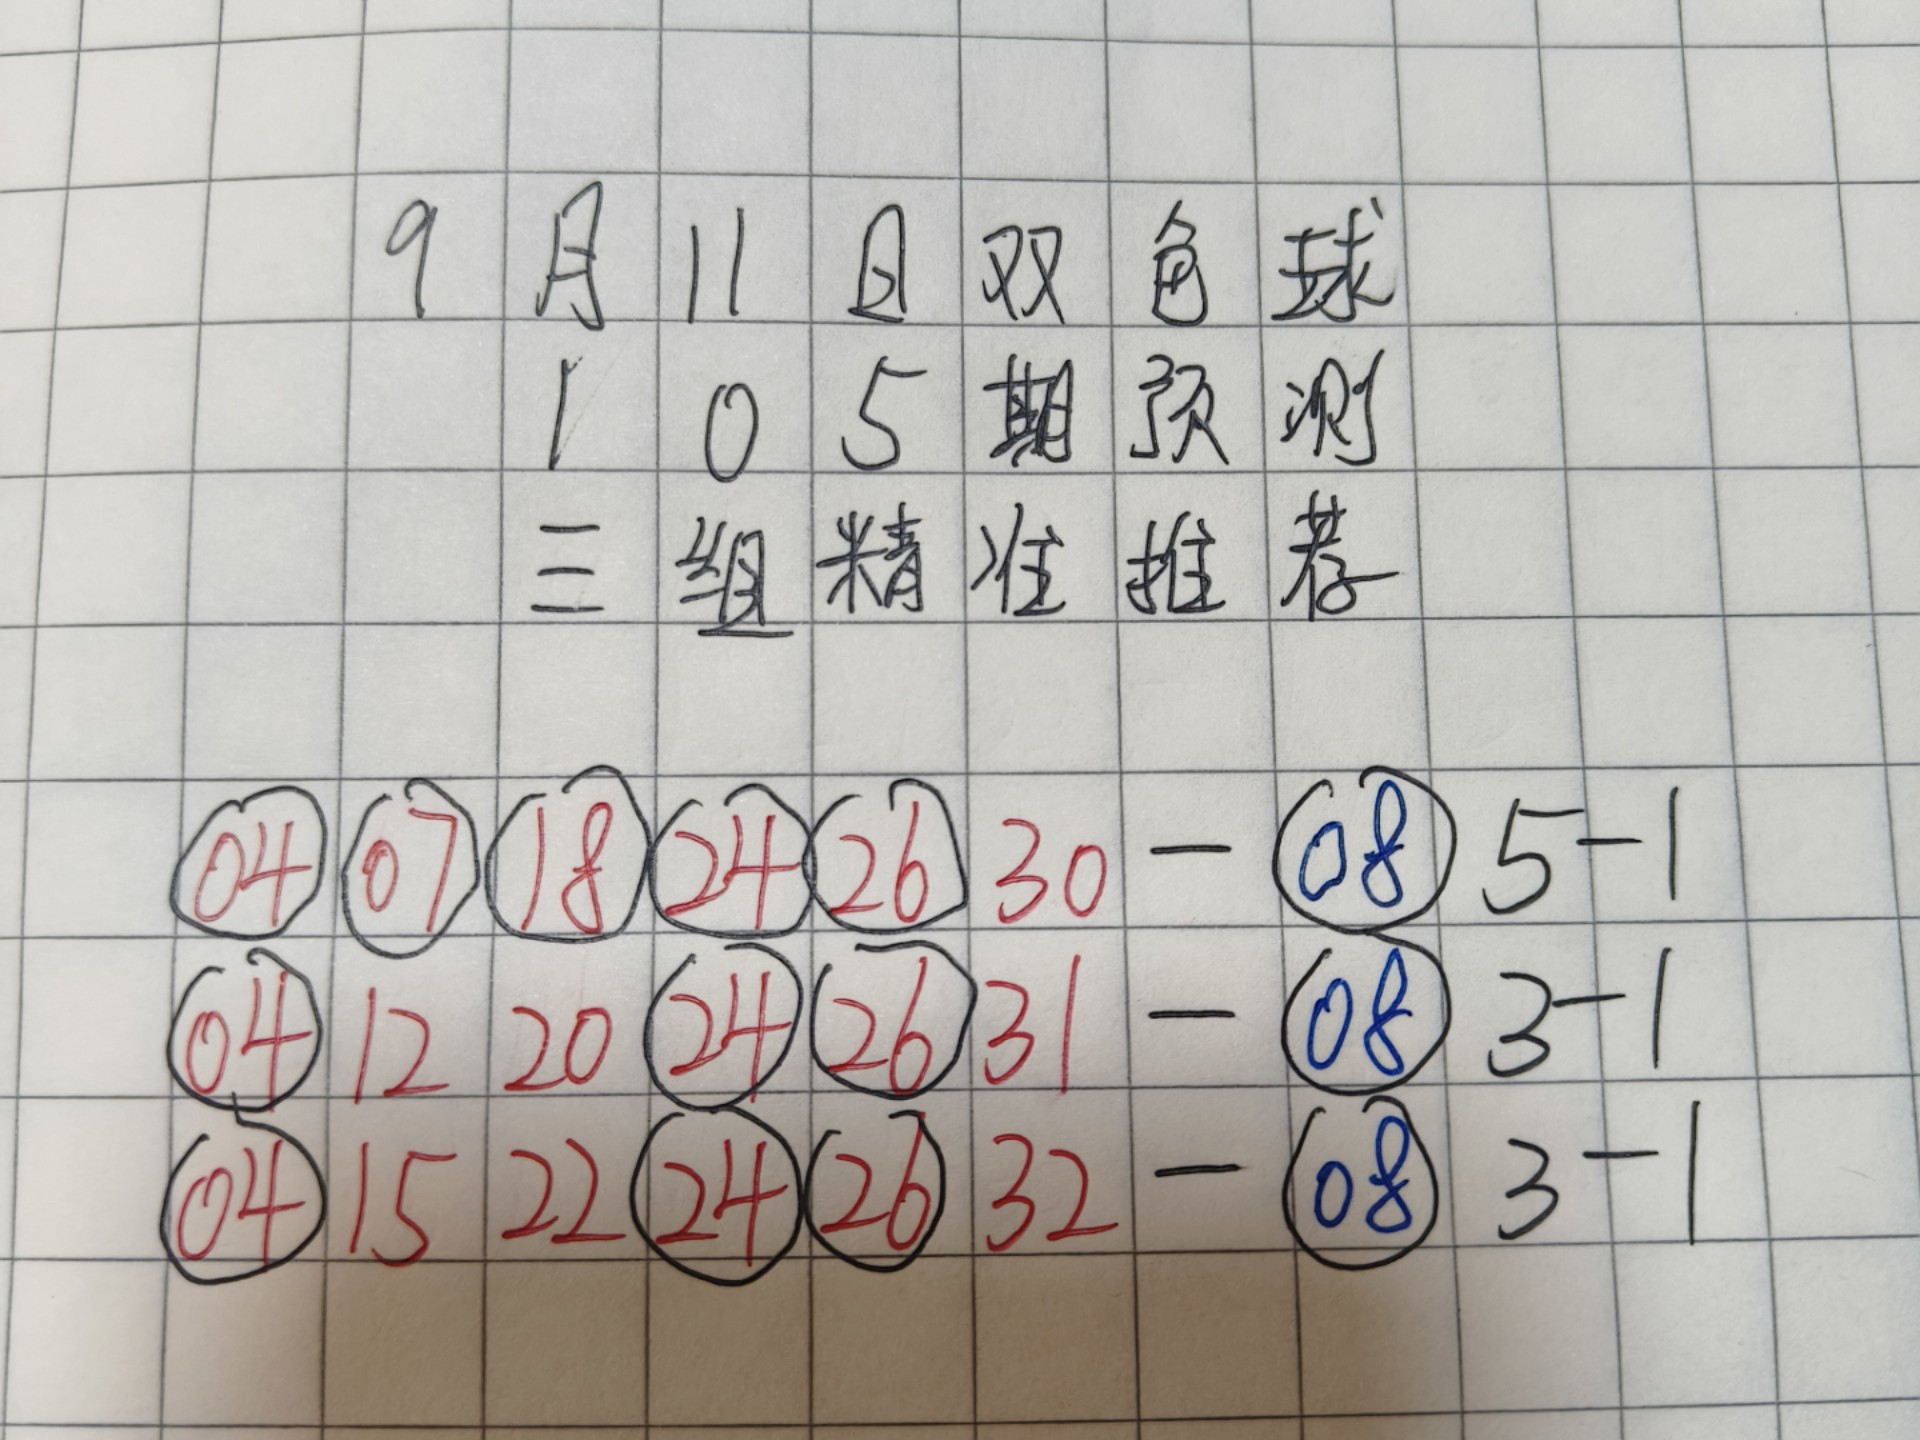 9月11日双色球
105期预测
三组精准推荐
04 07 18 24 26 30 — 08 5-1
04 12 20 24 26 31 — 08 3-1
04 15 22 24 26 32 — 08 3-1